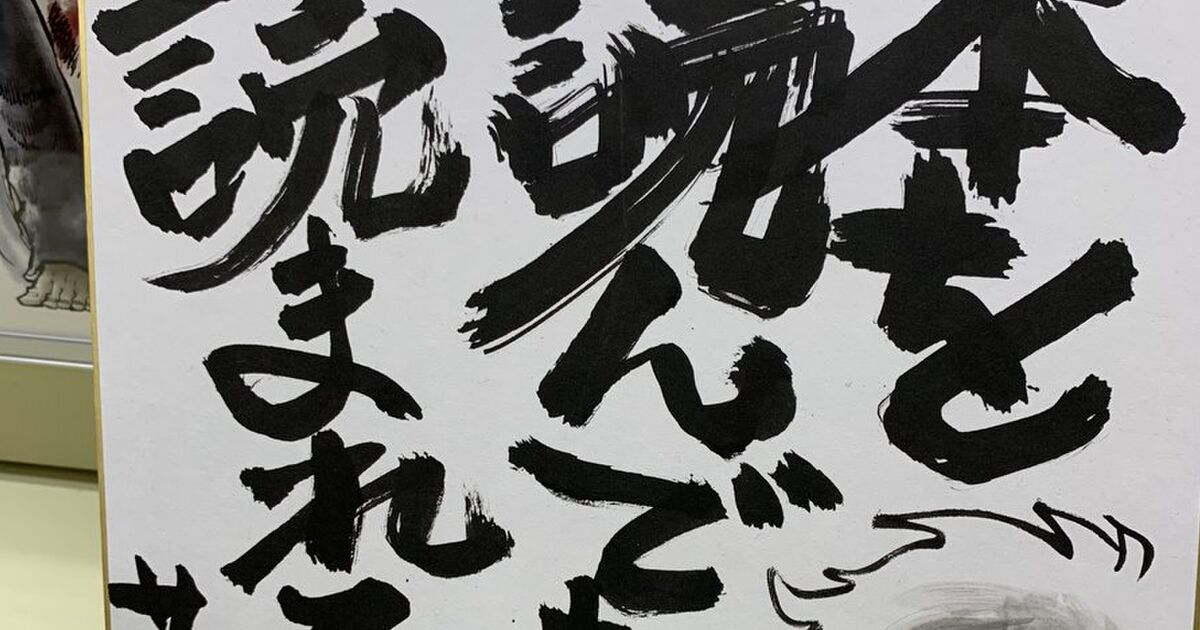 本を
読んで
読まれ